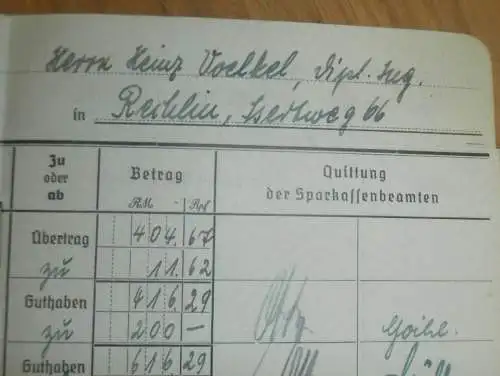 Herrn Heinz Voelkel, Dipl. Ing.
in Rechlin, 66
Zu oder ab Betrag Quittung der Sparkassenbeamten
RM. Rpf
Übertrag 404.67
zu 11.62
Guthaben 416.29
zu 200.—
Guthaben 616.29